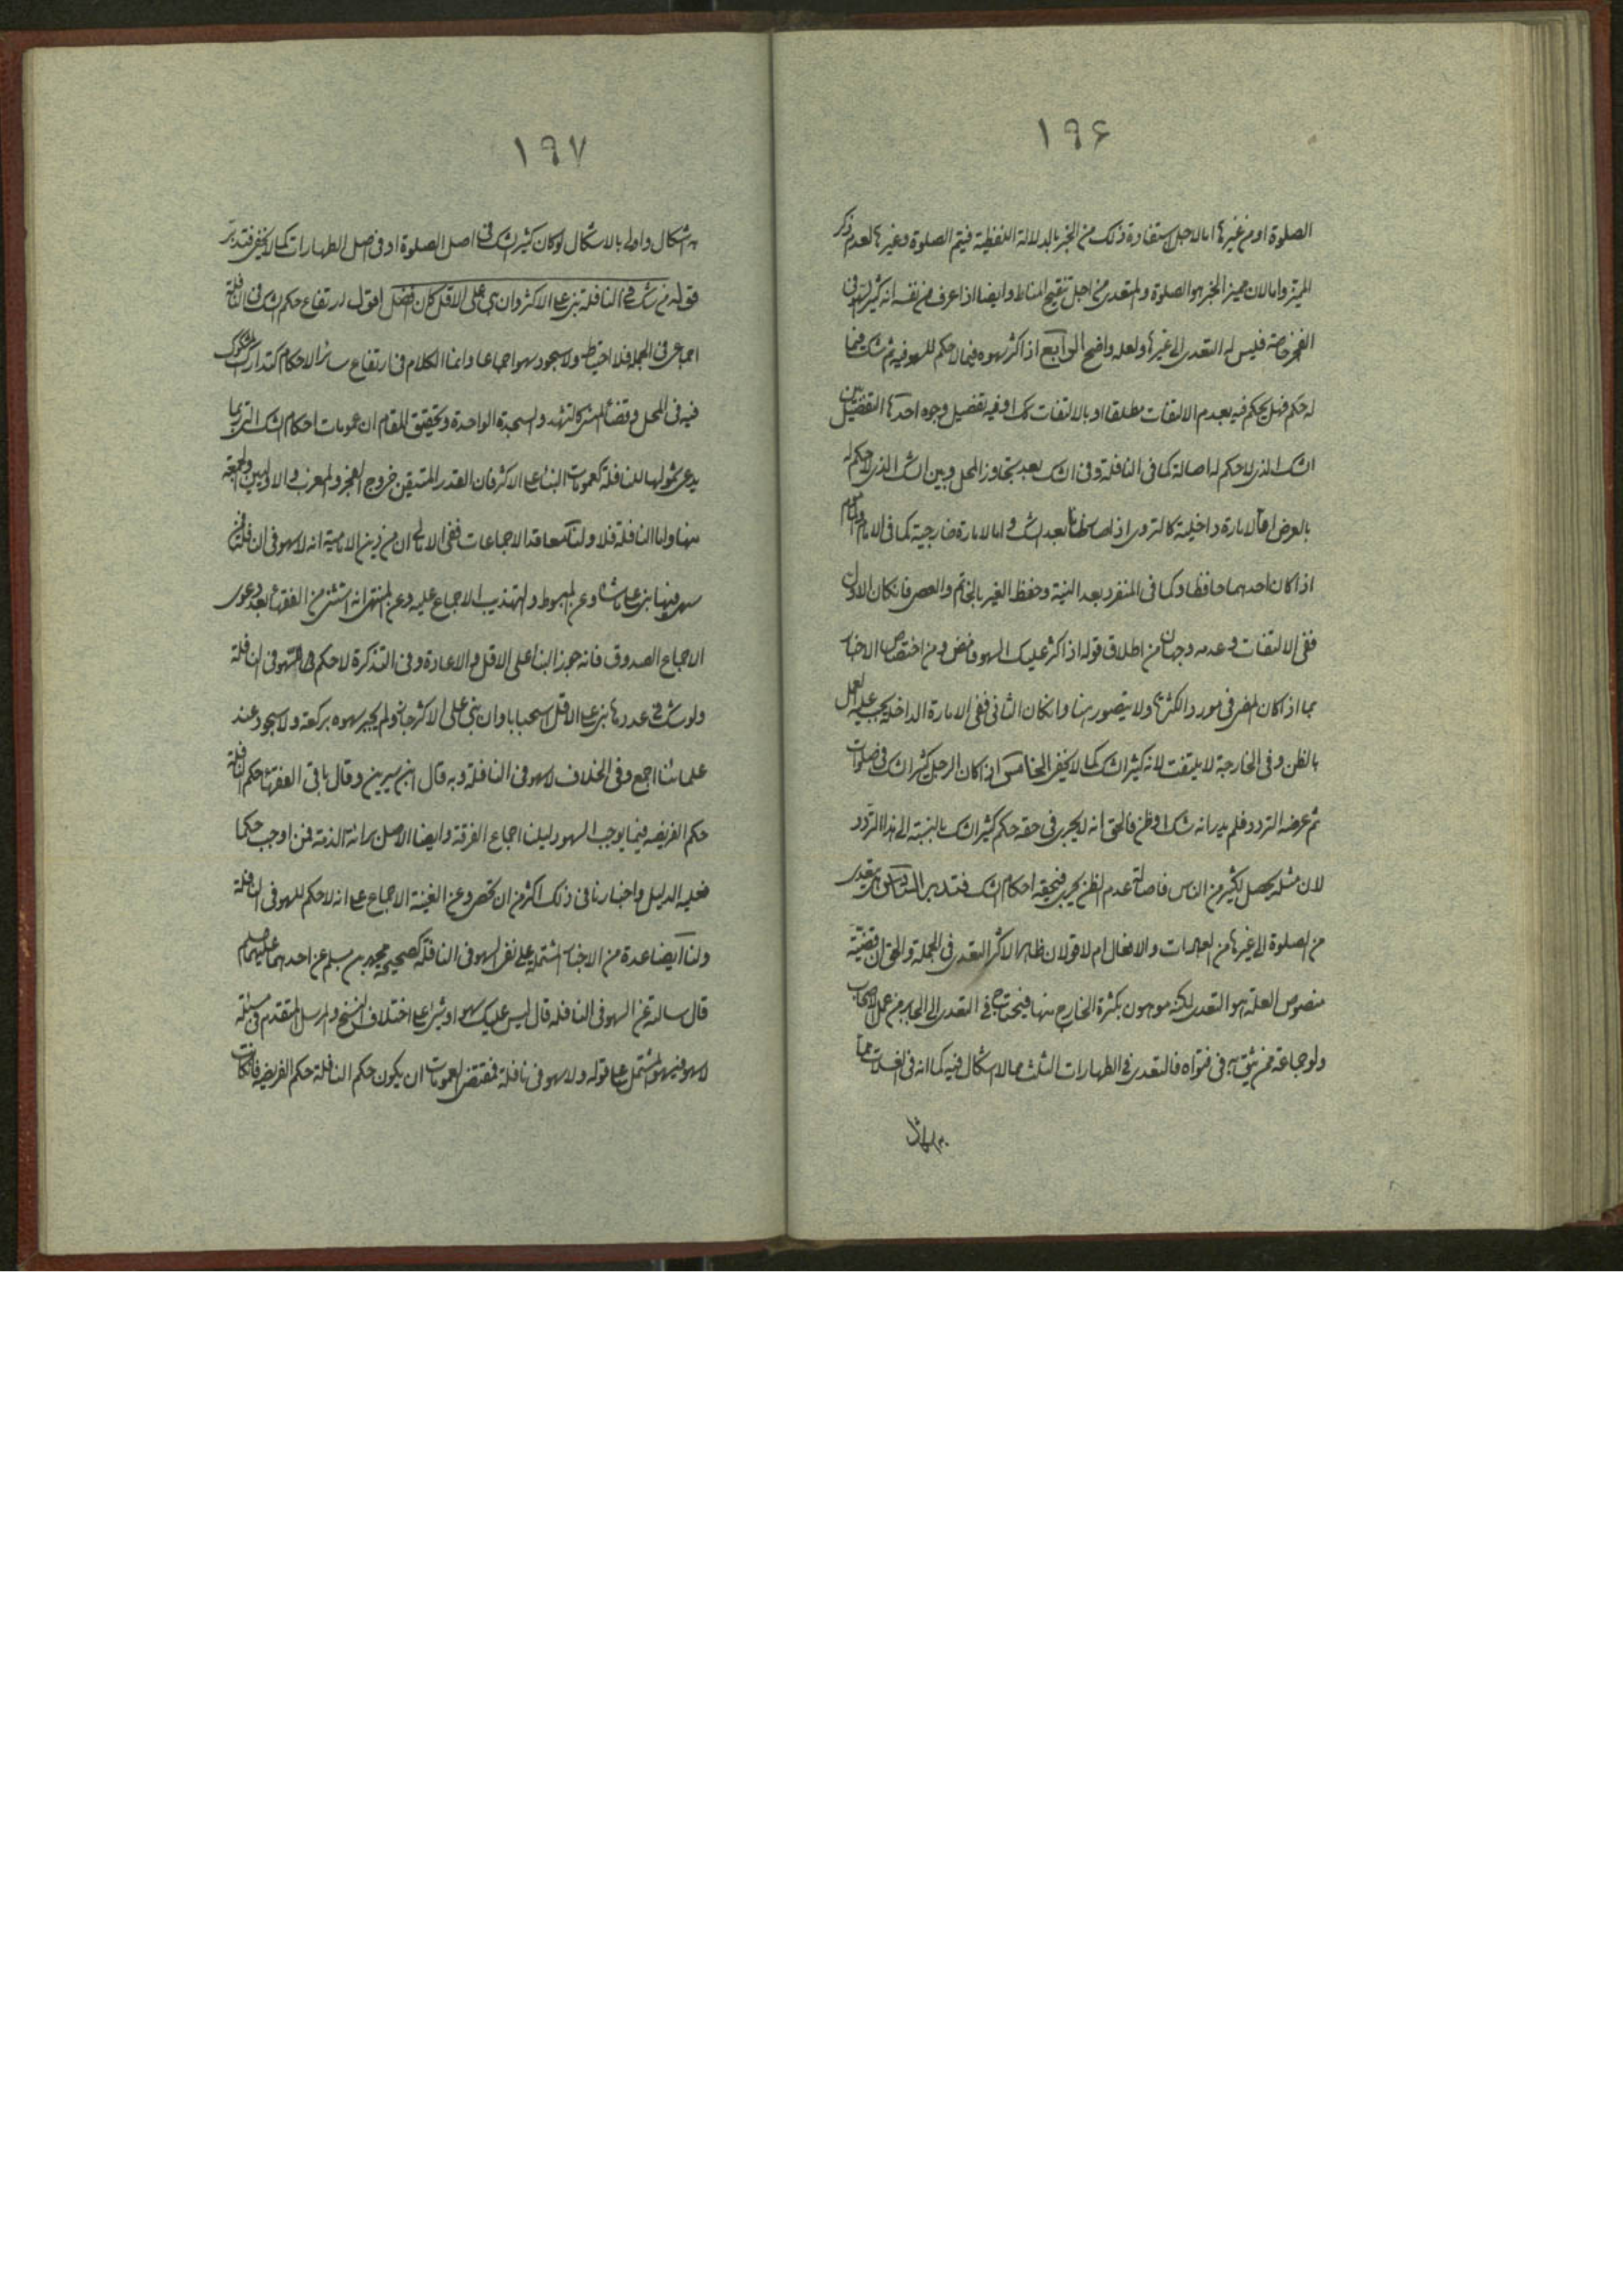 ١٩۶
الصلوة او من غيرها اما لاجل استفادة ذلك من الخبر بالدلالة اللفظية فيتم الصلوة وغيرها لعدم ذكر
المميز واما لان مميز الخبر هو الصلوة والتعدى من اجل تنقيح المناط وايضا اذا عرف من نفسه انه كثير السهو فى
الفجر خاصة فليس له التعدى الى غيرها ولعله واضح الرابع اذا كثر سهوه فيما لا حكم للسهو فيه ثم شك فيما
له حكم فهل يحكم فيه بعدم الالتفات مطلقا او بالالتفات كك او فيه تفصيل وجوه احدها التفصيل بين
الشك الذى لا حكم له اصالة كما فى النافلة وفى الشك بعد تجاوز المحل وبين الشك الذى لا حكم له
بالعرض اما لامارة داخلية كالتروى اذا حصل الظن بعد الشك و اما لامارة خارجية كما فى الامام والماموم
اذا كان احدهما حافظا وكما فى المنفرد بعد النية وحفظ الغير بالخاتم والحصى فان كان الاول
ففى الالتفات وعدمه وجهان من اطلاق قوله اذا كثر عليك السهو فامض ومن اختصاص الاخبار
بما اذا كان المضى فى مورد الكثرة ولا يتصور هنا وان كان الثانى ففى الامارة الداخلة يجب عليه العمل
بالظن وفى الخارجة لا يلتفت لانه كثير الشك كما لا يخفى الخامس اذا كان الرجل كثير الشك فى صلوات
ثم عرضه التردد فلم يدر انه شك او ظن فالحق انه لا يجرى فى حقه حكم كثير الشك بالنسبة الى هذا التردد
لان مثله يحصل لكثير من الناس فاصالة عدم الظن يجرى فيحقه احكام الشك فتدبر السادس هل يتعدى
من الصلوة الى غيرها من العبادات والافعال ام لا قولان ظاهر الاكثر التعدى فى الجملة والحق ان قضية
منصوص العلة هو التعدى لكنه موهون بكثرة الخارج منها فيحتاج فى التعدى الى الجابر من عمل الاصحاب
ولو جماعة ممن يثق به فى فتواه فالتعدى فى الطهارات الثلث مما لا اشكال فيه كما انه فى الغسلات مما
١٩٧
به اشكال واولى بالاشكال لو كان كثير الشك فى اصل الصلوة او فى اصل الطهارات كما لا يخفى فتدبر
قوله من شك فى النافلة بنى على الاكثر وان بنى على الاقل كان افضل اقول ارتفاع حكم الشك فى النافلة
اجماعى فى الجملة فلا احتياط ولا سجود سهو اجماعا وانما الكلام فى ارتفاع سائر الاحكام كتدارك المشكوك
فيه فى المحل وقضاء المنسى كالتشهد والسجدة الواحدة وتحقيق المقام ان عمومات احكام الشك التى ربما
يدعى شمولها للنافلة كعمومات البناء على الاكثر فان القدر المتيقن خروج الفجر والمغرب والاوليين والجمعة
منها واما النافلة فلا ولنا معاقد الاجماعات ففى الامالى ان من دين الامامية انه لا سهو فى النافلة فمن
سهى فيها بنى على ما شاء وعن المبسوط والتهذيب الاجماع عليه وعن المنتهى انه استثنى من الفقهاء بعد دعوى
الاجماع الصدوق فانه جوز البناء على الاقل والاعادة وفى التذكرة لا حكم للسهو فى النافلة
ولو شك فى عددها بنى على الاقل استحبابا وان بنى على الاكثر جاز ولم يجبر سهوه بركعة ولا سجود عند
علمائنا اجمع وفى الخلاف لا سهو فى النافلة وبه قال ابن سيرين وقال باقى الفقهاء حكم النافلة
حكم الفريضه فيما يوجب السهو دليلنا اجماع الفرقة وايضا الاصل برائة الذمة فمن اوجب حكما
فعليه الدليل واخبارنا فى ذلك اكثر من ان تحصر وعن الغنية الاجماع على انه لا حكم للسهو فى النافلة
ولنا ايضا عدة من الاخبار المشتملة على نفى السهو فى النافلة كصحيحة محمد بن مسلم عن احدهما عليهما السلام
قال سالته عن السهو فى النافله قال ليس عليك سهو او شئ على اختلاف النسخ والمرسل المتقدم فى مسئلة
لا سهو فى سهو المشتمل على قوله ولا سهو فى نافلة فمقتضى العمومات ان يكون حكم النافلة حكم الفريضة فانكانت